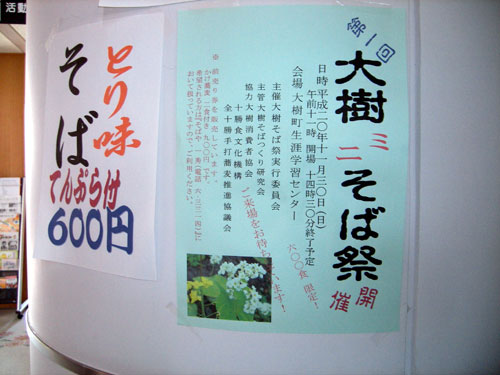 活動
とり味
そば
てんぷら付
600円
第1回
大樹ミニそば祭
開催
日時 平成二〇年十一月三〇日(日)
午前十一時 開場 十四時三〇分終了予定
会場 大樹町生涯学習センター
六〇〇食 限定!
主催 大樹そば祭実行委員会
主管 大樹そばつくり研究会
協力 大樹消費者協会
十勝食文化機構
全十勝手打蕎麦推進協議会
ご来場をお待ちしています!
※ 前売り券を販売しています
かけ蕎麦 二食付き 九〇〇円です。